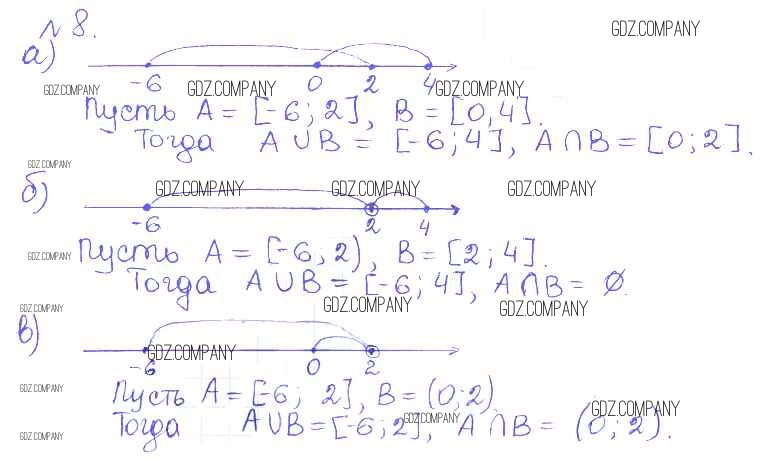 № 8.
GDZ.COMPANY
а)
-6 0 2 4
GDZ.COMPANY GDZ.COMPANY GDZ.COMPANY
Пусть A = [-6; 2], B = [0, 4].
Тогда A ∪ B = [-6; 4], A ∩ B = [0; 2].
GDZ.COMPANY
б)
GDZ.COMPANY GDZ.COMPANY GDZ.COMPANY
-6 2 4
GDZ.COMPANY
Пусть A = [-6, 2), B = [2; 4].
Тогда A ∪ B = [-6; 4], A ∩ B = ∅.
GDZ.COMPANY GDZ.COMPANY GDZ.COMPANY
в)
GDZ.COMPANY
-6 0 2
GDZ.COMPANY
Пусть A = [-6; 2], B = (0; 2)
GDZ.COMPANY GDZ.COMPANY
Тогда A ∪ B = [-6; 2], A ∩ B = (0; 2).
GDZ.COMPANY